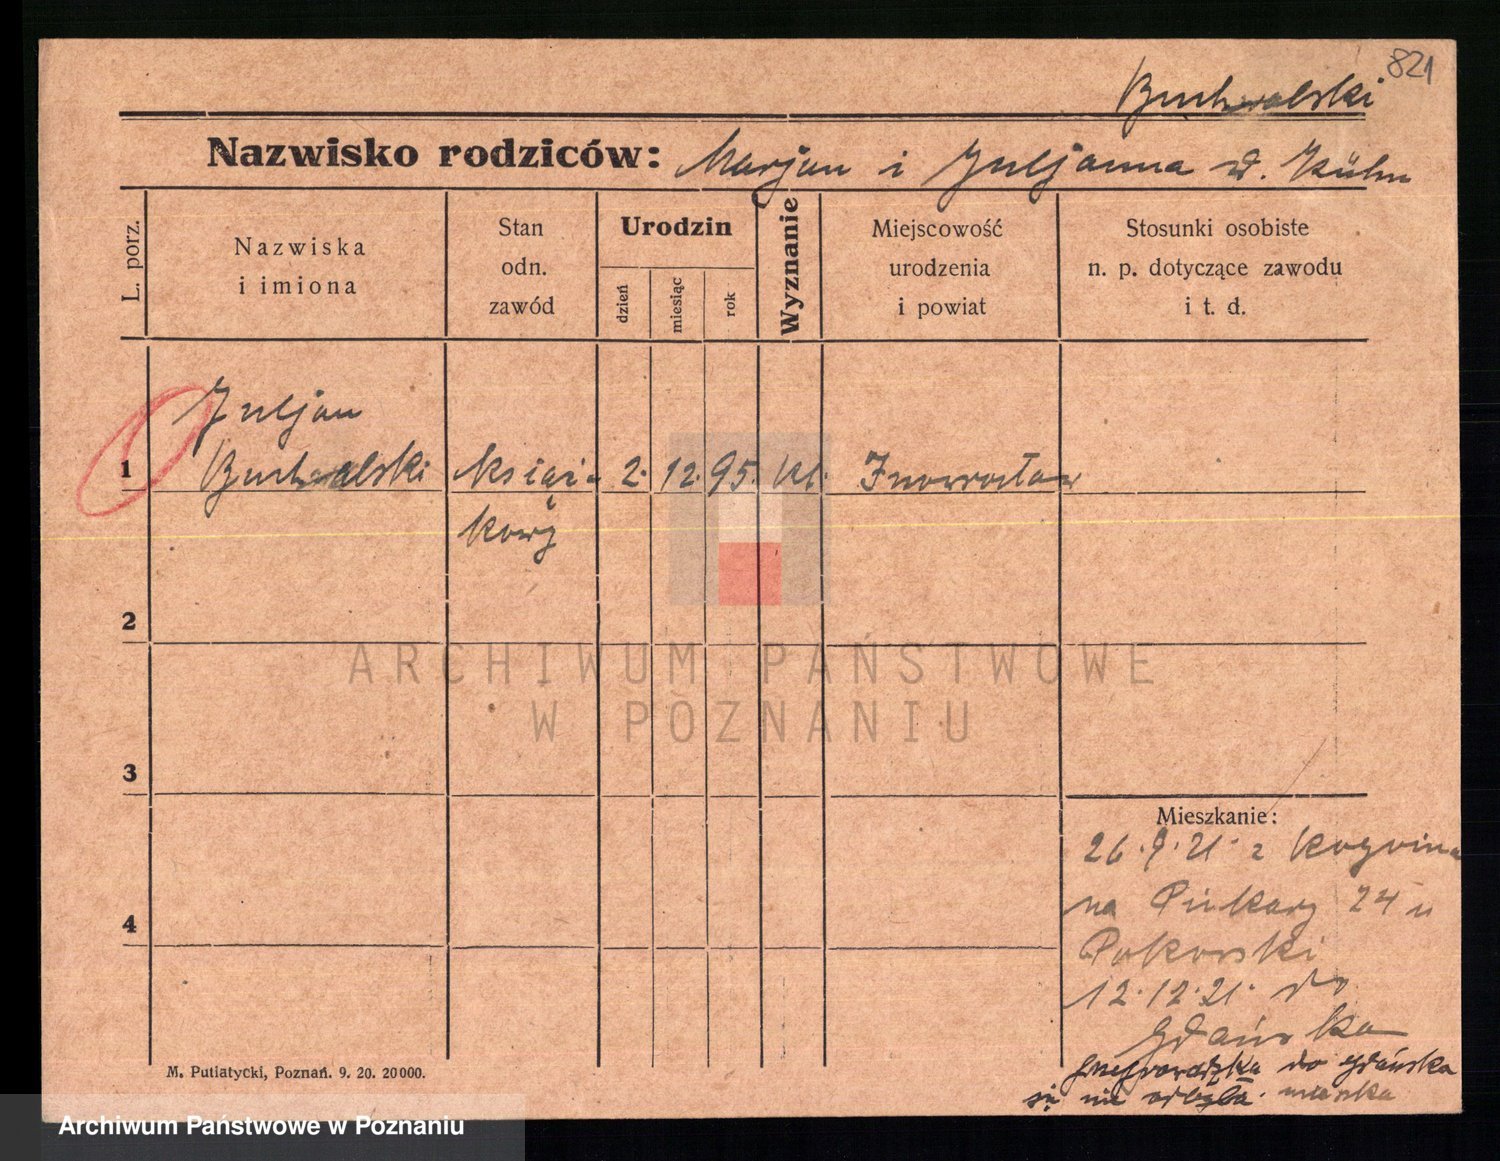 821
Buchwalski
Nazwisko rodziców: Marjan i Juljanna d. Kühn
L. porz.
Nazwiska
i imiona
Stan
odn.
zawód
Urodzin
dzień
miesiąc
rok
Wyznanie
Miejscowość
urodzenia
i powiat
Stosunki osobiste
n. p. dotyczące zawodu
i t. d.
Juljan
1 Buchwalski książ- 2. 12. 95. kt. Inowrocław
kowy
2
3
4
Mieszkanie:
26. 9. 21. z
na Piekary 24 u
Pokorski
12. 12. 21. do
Gdańska
do Gdańska
się nie odbyła. mieszka
M. Putiatycki, Poznań. 9. 20. 20 000.
ARCHIWUM PAŃSTWOWE
W POZNANIU
Archiwum Państwowe w Poznaniu